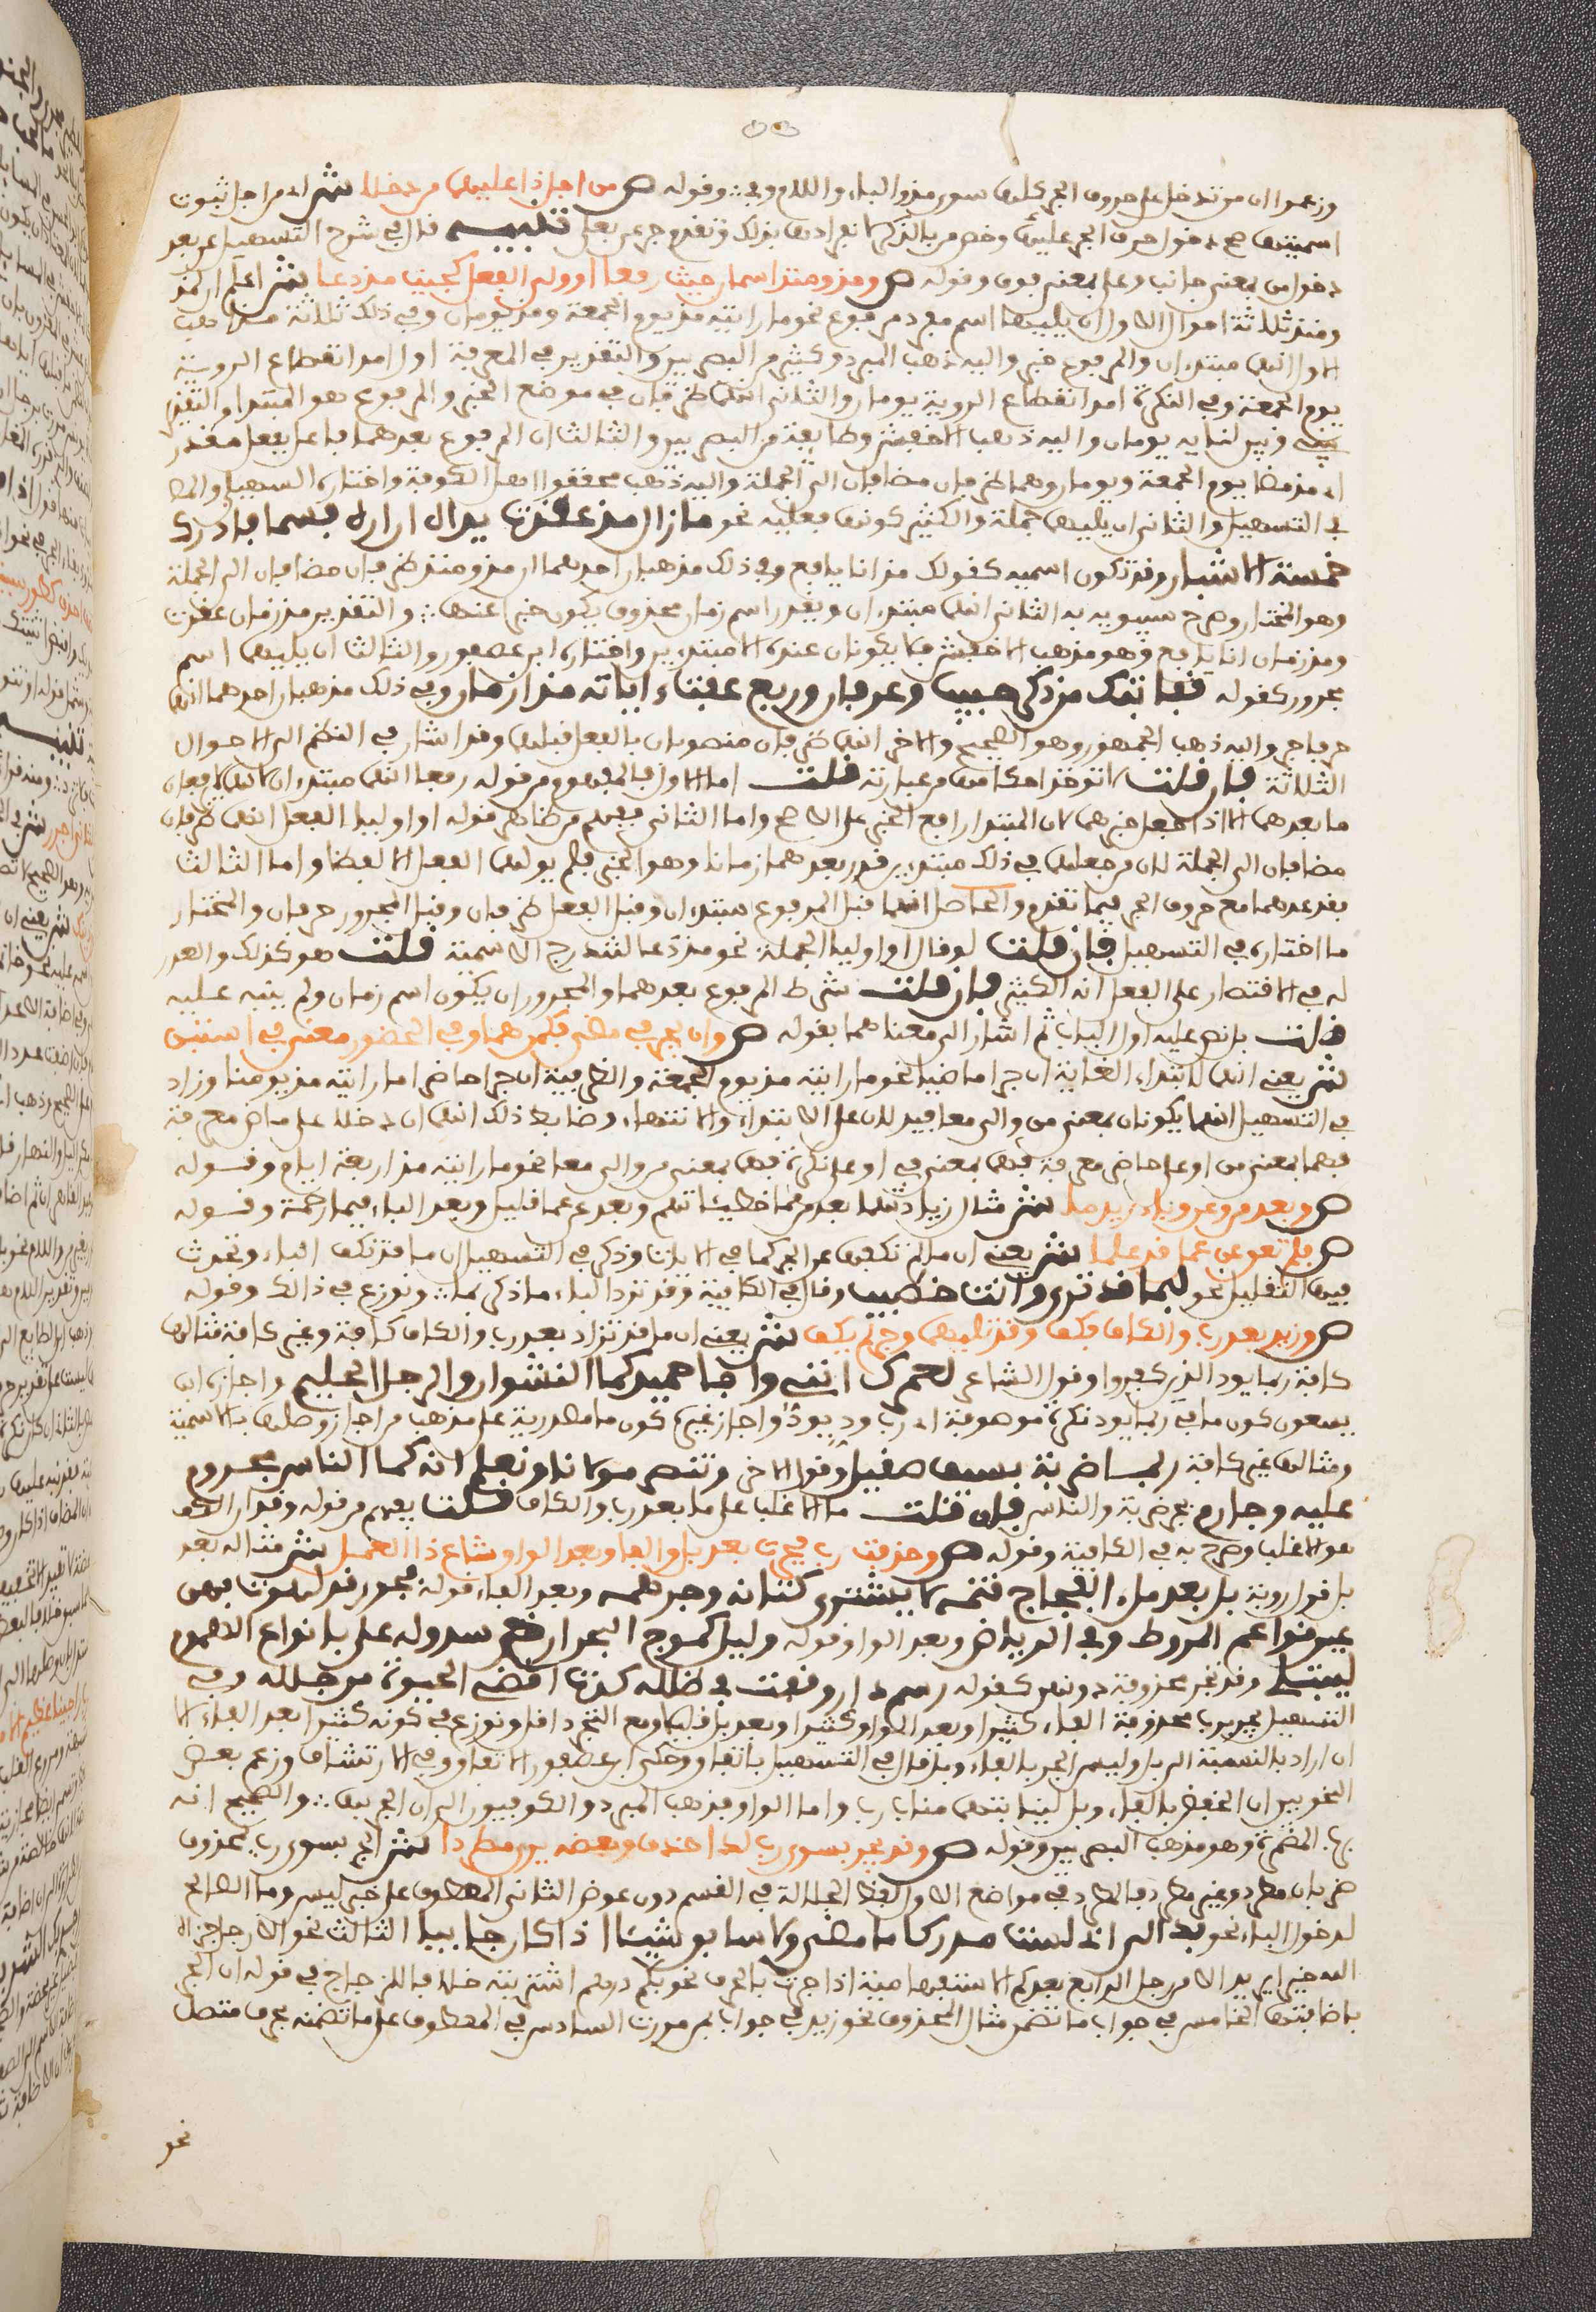 وزعموا ان من تدخل على حروف الجر كلها سوى مذ والباء واللام وفي وقوله ص من اجل ذا عليهما من دخلا ش اي من اجل ثبوت
اسميتهما صح دخول حرف الجر عليهما وخص من بالذكر انفرادها بذلك وتقدم جر عن بعلى تنبيه قال في شرح التسهيل عن بعد
دخول من بمعنى جانب وعلى بمعنى فوق وقوله ص ومذ ومنذ اسمان حيث رفعا او اوليا الفعل كجئت مذ دعا ش اعلم ان لمذ
ومنذ ثلاثة احوال الاول ان يليهما اسم مفرد مرفوع نحو ما رايته مذ يوم الجمعة ومذ يومان وفي ذلك ثلاثة مذاهب
الاول انهما مبتدءان والمرفوع خبر واليه ذهب المبرد وكثير من البصريين والتقدير في المعرفة اول امد انقطاع الروية
يوم الجمعة وفي النكرة امد انقطاع الروية يومان والثاني انهما ظرفان في موضع الخبر والمرفوع هو المبتدا والتقدير
بيني وبين لقايه يومان واليه ذهب الاخفش وطايفة من البصريين والثالث ان المرفوع بعدهما فاعل بفعل مقدر
اي مذ مضا يوم الجمعة ويومان وهما ظرفان مضافان الى الجملة واليه ذهب محققوا اهل الكوفة واختاره السهيلي والمص
في التسهيل والثاني ان يليهما جملة والكثير كونها فعلية نحو ما زال مذ عقدت يداه ازاره فسما فادرك
خمسة الاشبار وقد تكون اسمية كقولك مذ انا يافع وفي ذلك مذهبان احدهما ان مذ ومنذ ظرفان مضافان الى الجملة
وهو المختار وصرح سيبويه به الثاني انهما مبتدءان ويقدر اسم زمان محذوف يكون خبرا عنهما والتقدير مذ زمان عقدت
ومذ زمان انا يافع وهو مذهب الاخفش فلا يكونان عنده الا مبتدءين واختاره ابن عصفور والثالث ان يليهما اسم
مجرور كقوله قفا نبك من ذكرى حبيب وعرفان وربع عفت اياته منذ ازمان وفي ذلك مذهبان احدهما انهما
حرفا جر واليه ذهب الجمهور وهو الصحيح والاخر انهما ظرفان منصوبان بالفعل قبلهما وقد اشار في النظم الى الاحوال
الثلاثة فان قلت اتوخذ احكامها من عبارته قلت اما الاول فالمفهوم من قوله رفعا انهما مبتدءان لانهما لا يرفعان
ما بعدهما الا اذا جعل خبرهما لان المبتدا رافع الخبر على الاصح واما الثاني فيفهم من ظاهر قوله او اوليا الفعل انهما ظرفان
مضافان الى الجملة لان من جعلهما في ذلك مبتدءين قدر بعدهما زمانا وهو الخبر فلم يولهما الفعل الا لفظا واما الثالث
فقد عدهما مع حروف الجر فيما تقدم والحاصل انهما قبل المرفوع مبتدءان وقبل الفعل ظرفان وقبل المجرور حرفان والمختار
ما اختاره في التسهيل فان قلت لو قال او اوليا الجملة نحو مذ دعا لتندرج الاسمية قلت هو كذلك والعذر
له في الاقتصار على الفعل انه الكثير فان قلت شرط المرفوع بعدهما والمجرور ان يكون اسم زمان ولم ينبه عليه
قلت بل نص عليه اول الباب ثم اشار الى معناهما بقوله ص وان يجرا في مضي فكمن هما وفي الحضور معنى في استبن
ش يعني انهما لابتداء الغاية ان جرا ماضيا نحو ما رايته مذ يوم الجمعة والظرفية ان جرا حاضرا ما رايته مذ يومنا وزاد
في التسهيل انهما يكونان بمعنى من والى معا فيدلان على الابتداء والانتهاء وضابط ذلك انهما ان دخلا على ماض معرفة
فهما بمعنى من او على حاضر معرفة فهما بمعنى في او على نكرة فهما بمعنى من والى معا نحو ما رايته مذ اربعة ايام وقوله
ص وبعد من وعن وباء زيد ما ش مثال زيادتها بعد من مما خطيئاتهم وبعد عن عما قليل وبعد الباء فبما رحمة وقوله
ص فلم تعق عن عمل قد علما ش يعني ان ما لم تكفهما عن الجر كما في الايات وذكر في التسهيل ان ما قد تكف الباء وتحدث
فيها التقليل نحو لبما قد ترى وانت خطيب وقال في الكافية وقد تزاد الباء ما ذكر بما ونوزع في ذالك وقوله
ص وزيد بعد رب والكاف فكف وقد تليهما وجر لم يكف ش يعني ان ما قد تزاد بعد رب والكاف كافة وغير كافة فمثالها
كافة ربما يود الذين كفروا وقول الشاعر لعمرك انني وابا حميد كما النشوان والرجل الحليم واجاز ابن
يسعون كون ما في ربما يود نكرة موصوفة اي رب ود يود واجاز غيره كون ما مصدرية على مذهب من اجاز وصلها بالاسمية
ومثالها غير كافة ربما ضربة بسيف صقيل وقول الاخر وننصر مولانا ونعلم انه كما الناس مجروم
عليه وجارم بجر ضربة والناس فان قلت ما الاغلب على ما بعد رب والكاف قلت يفهم من قوله وقد ان الكف
هو الاغلب وصرح به في الكافية وقوله ص وحذفت رب فجرت بعد بل والفا وبعد الواو شاع ذا العمل ش مثاله بعد
بل قول روبة بل بلد ملء الفجاج قتمه لا يشترى كتانه وجهرمه وبعد الفاء قوله فحور قد لهوت بهن
عين نواعم في المروط وفي الرياط وبعد الواو قوله وليل كموج البحر ارخى سدوله علي بانواع الهموم
ليبتلي وقد تجر محذوفة دونهن كقوله رسم دار وقفت في طلله كدت اقضي الحيوة من جلله وفي
التسهيل تجر رب محذوفة الفاء كثيرا وبعد الواو كثيرا وبعد بل قليلا ومع التجرد اقل ونوزع في كونه كثيرا بعد الفاء الا
ان اراد بالنسبة الى بل وليس الجر بالفاء وبل قال في التسهيل باتفاق وحكى ابن عصفور الاتفاق وفي الارتشاف وزعم بعض
النحويين ان الخفض بالفاء وبل لنيابتهما مناب رب واما الواو فذهب المبرد والكوفيون الى ان الجر بها والصحيح انه
برب المضمرة وهو مذهب البصريين وقوله ص وقد يجر بسوى رب لدى حذف وبعضه يرى مطردا ش الجر بسوى رب محذوف
ضربان مطرد وغير مطرد فالمطرد في مواضع الاول لفظ الجلالة في القسم دون عوض الثاني المعطوف على خبر ليس وما الصالح
لدخول الباء نحو بدا لي اني لست مدرك ما مضى ولا سابق شيئا اذا كان جاييا الثالث نحو الا رجل جزاه
الله خيرا يريد الا من رجل الرابع بعد كم الاستفهامية اذا جرت بالحرف نحو بكم درهم اشتريته خلافا للزجاج في قوله ان الجر
باضافتها الخامس في جواب ما تضمن مثال المحذوف نحو زيد في جواب بمن مررت السادس في المعطوف على ما تضمنه بحرف متصل
نحو